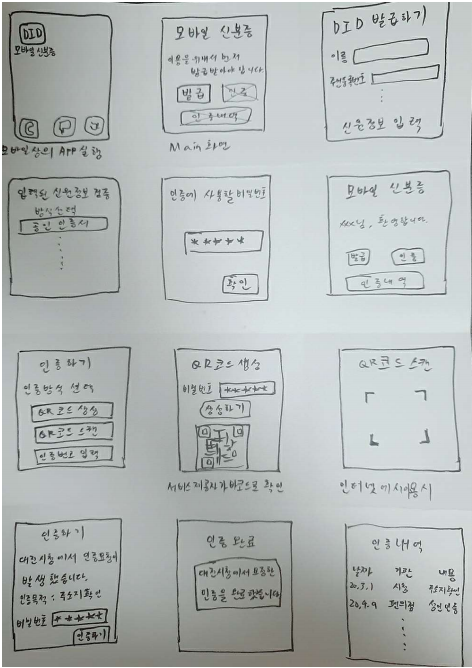 DID
모바일 신분증
모바일상의 App 실행
모바일 신분증
이용을 위해서 먼저
발급받아야 합니다
발급 인증
인증내역
Main 화면
DID 발급하기
이름
주민등록번호
신원정보 입력
입력된 신원정보 검증
방식선택
공인인증서
인증에 사용할 비밀번호
*****
확인
모바일 신분증
xxx님, 환영합니다.
발급 인증
인증내역
인증하기
인증방식 선택
QR코드 생성
QR코드 스캔
인증번호 입력
QR코드 생성
비밀번호 *****
생성하기
서비스 제공자가 바코드로 확인
QR코드 스캔
인터넷에서 이용시
인증하기
대전시청에서 인증요청이
발생했습니다.
인증목적 : 주소지확인
비밀번호 *****
인증하기
인증 완료
대전시청에서 요청한
인증을 완료했습니다
인증내역
날짜 기관 내용
20.3.1 시청 주소지확인
20.4.9 편의점 성인인증